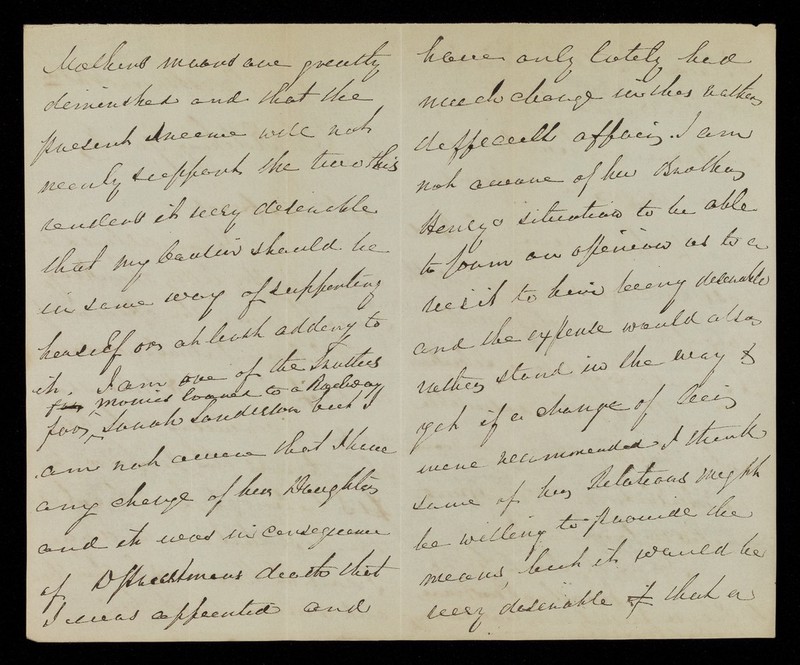 Mothers means are greatly
diminshed and that the
present Income will not
nearly support the two this
renders it very desirable
that my Cousin should be
in some way of supporting
herself or at least adding to
it. I am one of the Trustees
monies loaned to a Railway
for Sarah Sanderson but I
am not aware that I have
any charge of her Daughter
and it was in consequence
of Dr death that
I was appointed and
have only lately had
much change in this rather
difficult affair. I am
not aware of her Brother
Henrys situation to be able
to form an opinion as to a
visit to him being desirable
and the expense would also
rather stand in the way &
yet if a change of
were recommended I think
some of her Relations might
be willing to provide the
means, but it would be
very desirable that a